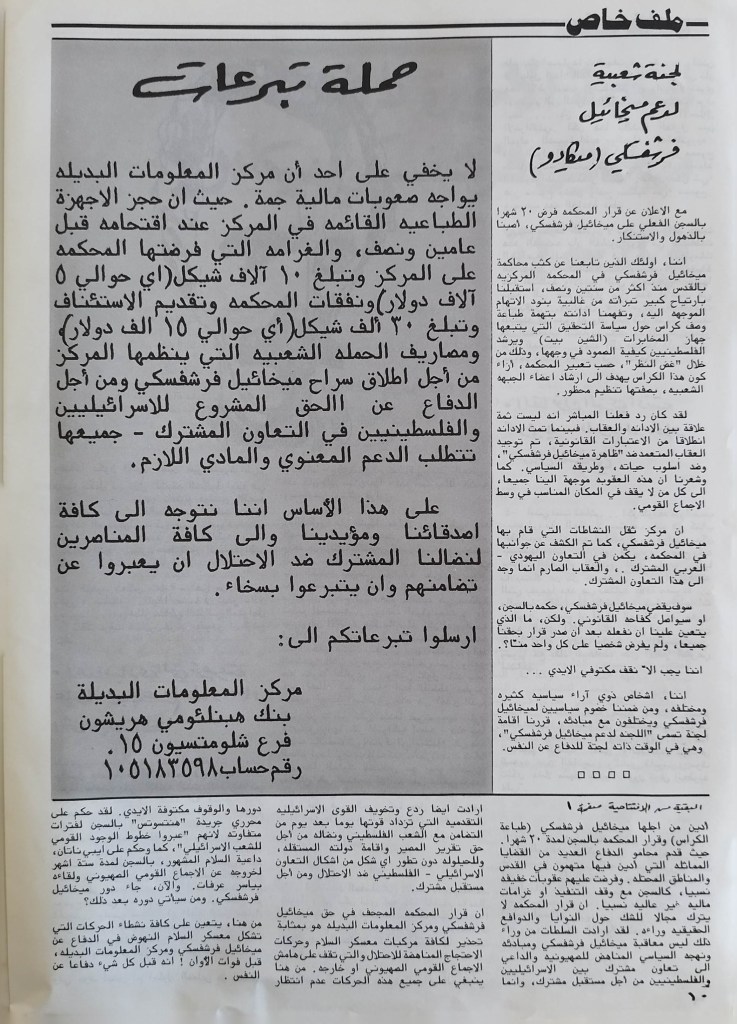 ملف خاص
لجنة شعبية
لدعم ميخائيل
فرشفسكي (ميكادو)
مع الاعلان عن قرار المحكمه فرض ٢٠ شهرا
بالسجن الفعلي على ميخائيل فرشفسكي، اصبنا
بالذهول والاستنكار.
اننا، اولئك الذين تابعنا عن كثب محاكمة
ميخائيل فرشفسكي في المحكمه المركزيه
بالقدس منذ اكثر من سنتين ونصف، استقبلنا
بارتياح كبير تبرأته من غالبية بنود الاتهام
الموجهه اليه، وتفهمنا ادانته بتهمة طباعة
وصف كراس حول سياسة التحقيق التي يتبعها
جهاز المخابرات (الشين بيت) ويرشد
الفلسطينيين كيفية الصمود في وجهها، وذلك من
خلال "غض النظر"، حسب تعبير المحكمه، ازاء
كون هذا الكراس يهدف الى ارشاد اعضاء الجبهه
الشعبيه، بصفتها تنظيم محظور.
لقد كان رد فعلنا المباشر انه ليست ثمة
علاقة بين الادانه والعقاب. فبينما تمت الادانه
انطلاقا من الاعتبارات القانونية، تم توجيه
العقاب المتعمد ضد "ظاهرة ميخائيل فرشفسكي"،
وضد اسلوب حياته، وطريقه السياسي. كما
وشعرنا ان هذه العقوبه موجهة الينا جميعا،
الى كل من لا يقف في المكان المناسب في وسط
الاجماع القومي.
ان مركز ثقل النشاطات التي قام بها
ميخائيل فرشفسكي، كما تم الكشف عن جوانبها
في المحكمه، يكمن في التعاون اليهودي -
العربي المشترك .، والعقاب الصارم انما وجه
الى هذا التعاون المشترك.
سوف يقضي ميخائيل فرشفسكي، حكمه بالسجن،
او سيواصل كفاحه القانوني. ولكن، ما الذي
يتعين علينا ان نفعله بعد ان صدر قرار بحقنا
جميعا، ولم يفرض شخصيا على كل واحد منا؟.
اننا يجب الا نقف مكتوفي الايدي ...
اننا، اشخاص ذوي آراء سياسيه كثيره
ومختلفه، ومن ضمننا خصوم سياسيين لميخائيل
فرشفسكي ويختلفون مع مبادئه، قررنا اقامة
لجنة تسمى "اللجنه لدعم ميخائيل فرشفسكي"،
وهي في الوقت ذاته لجنة للدفاع عن النفس.
حملة تبرعات
لا يخفي على احد أن مركز المعلومات البديله
يواجه صعوبات مالية جمة. حيث ان حجز الاجهزة
الطباعيه القائمه في المركز عند اقتحامه قبل
عامين ونصف، والغرامه التي فرضتها المحكمه
على المركز وتبلغ ١٠ آلاف شيكل(اي حوالي ٥
آلاف دولار)ونفقات المحكمه وتقديم الاستئناف
وتبلغ ٣٠ ألف شيكل(أي حوالي ١٥ الف دولار)،
ومصاريف الحمله الشعبيه التي ينظمها المركز
من أجل اطلاق سراح ميخائيل فرشفسكي ومن أجل
الدفاع عن االحق المشروع للاسرائيليين
والفلسطينيين في التعاون المشترك - جميعها
تتطلب الدعم المعنوي والمادي اللازم.
على هذا الأساس اننا نتوجه الى كافة
اصدقائنا ومؤيدينا والى كافة المناصرين
لنضالنا المشترك ضد الاحتلال ان يعبروا عن
تضامنهم وان يتبرعوا بسخاء.
ارسلوا تبرعاتكم الى:
مركز المعلومات البديلة
بنك هبنلئومي هريشون
فرع شلومتسيون ١٥.
رقم حساب ١٠٥١٨٣٥٩٨
البقية من الإفتتاحية صفحة ١
أدين من اجلها ميخائيل فرشفسكي (طباعة
الكراس) وقرار المحكمه بالسجن لمدة ٢٠ شهرا.
حيث قدم محامو الدفاع العديد من القضايا
المماثله التي أدين فيها متهمون في القدس
والمناطق المحتله. وفرضت عليهم عقوبات خفيفه
نسبيا، كالسجن مع وقف التنفيذ او غرامات
ماليه غير عاليه نسبيا. ان قرار المحكمه لا
يترك مجالا للشك حول النوايا والدوافع
الحقيقيه وراءه. لقد ارادت السلطات من وراء
ذلك ليس معاقبة ميخائيل فرشفسكي ومبادئه
ونهجه السياسي المناهض للصهيونيه والداعي
الى تعاون مشترك بين الاسرائيليين
والفلسطينيين من اجل مستقبل مشترك، وانما
ارادت ايضا ردع وتخويف القوى الاسرائيليه
التقدميه التي تزداد قوتها يوما بعد يوم من
التضامن مع الشعب الفلسطيني ونضاله من اجل
حق تقرير المصير واقامة دولته المستقله،
وللحيلوله دون تطور اي شكل من اشكال التعاون
الاسرائيلي - الفلسطيني ضد الاحتلال ومن اجل
مستقبل مشترك.
ان قرار المحكمه المجحف في حق ميخائيل
فرشفسكي ومركز المعلومات البديله هو بمثابة
تحذير لكافة مركبات معسكر السلام وحركات
الاحتجاج المناهضة للاحتلال والتي تقف على هامش
الاجماع القومي الصهيوني او خارجه. من هنا
ينبغي على جميع هذه الحركات عدم انتظار
دورها والوقوف مكتوفة الايدي. لقد حكم على
محرري جريدة "هنتسوتس" بالسجن لفترات
متفاوته لانهم "عبروا خطوط الوجود القومي
للشعب الاسرائيلي"، كما وحكم على ايبي ناتان،
داعية السلام المشهور، بالسجن لمدة ستة اشهر
لخروجه عن الاجماع القومي الصهيوني ولقاءه
بياسر عرفات. والآن، جاء دور ميخائيل
فرشفسكي. ومن سيأتي دوره بعد ذلك؟
من هنا، يتعين على كافة نشطاء الحركات التي
تشكل معسكر السلام النهوض في الدفاع عن
ميخائيل فرشفسكي ومركز المعلومات البديله،
قبل فوات الأوان ! انه قبل كل شيء دفاعا عن
النفس.
١٠